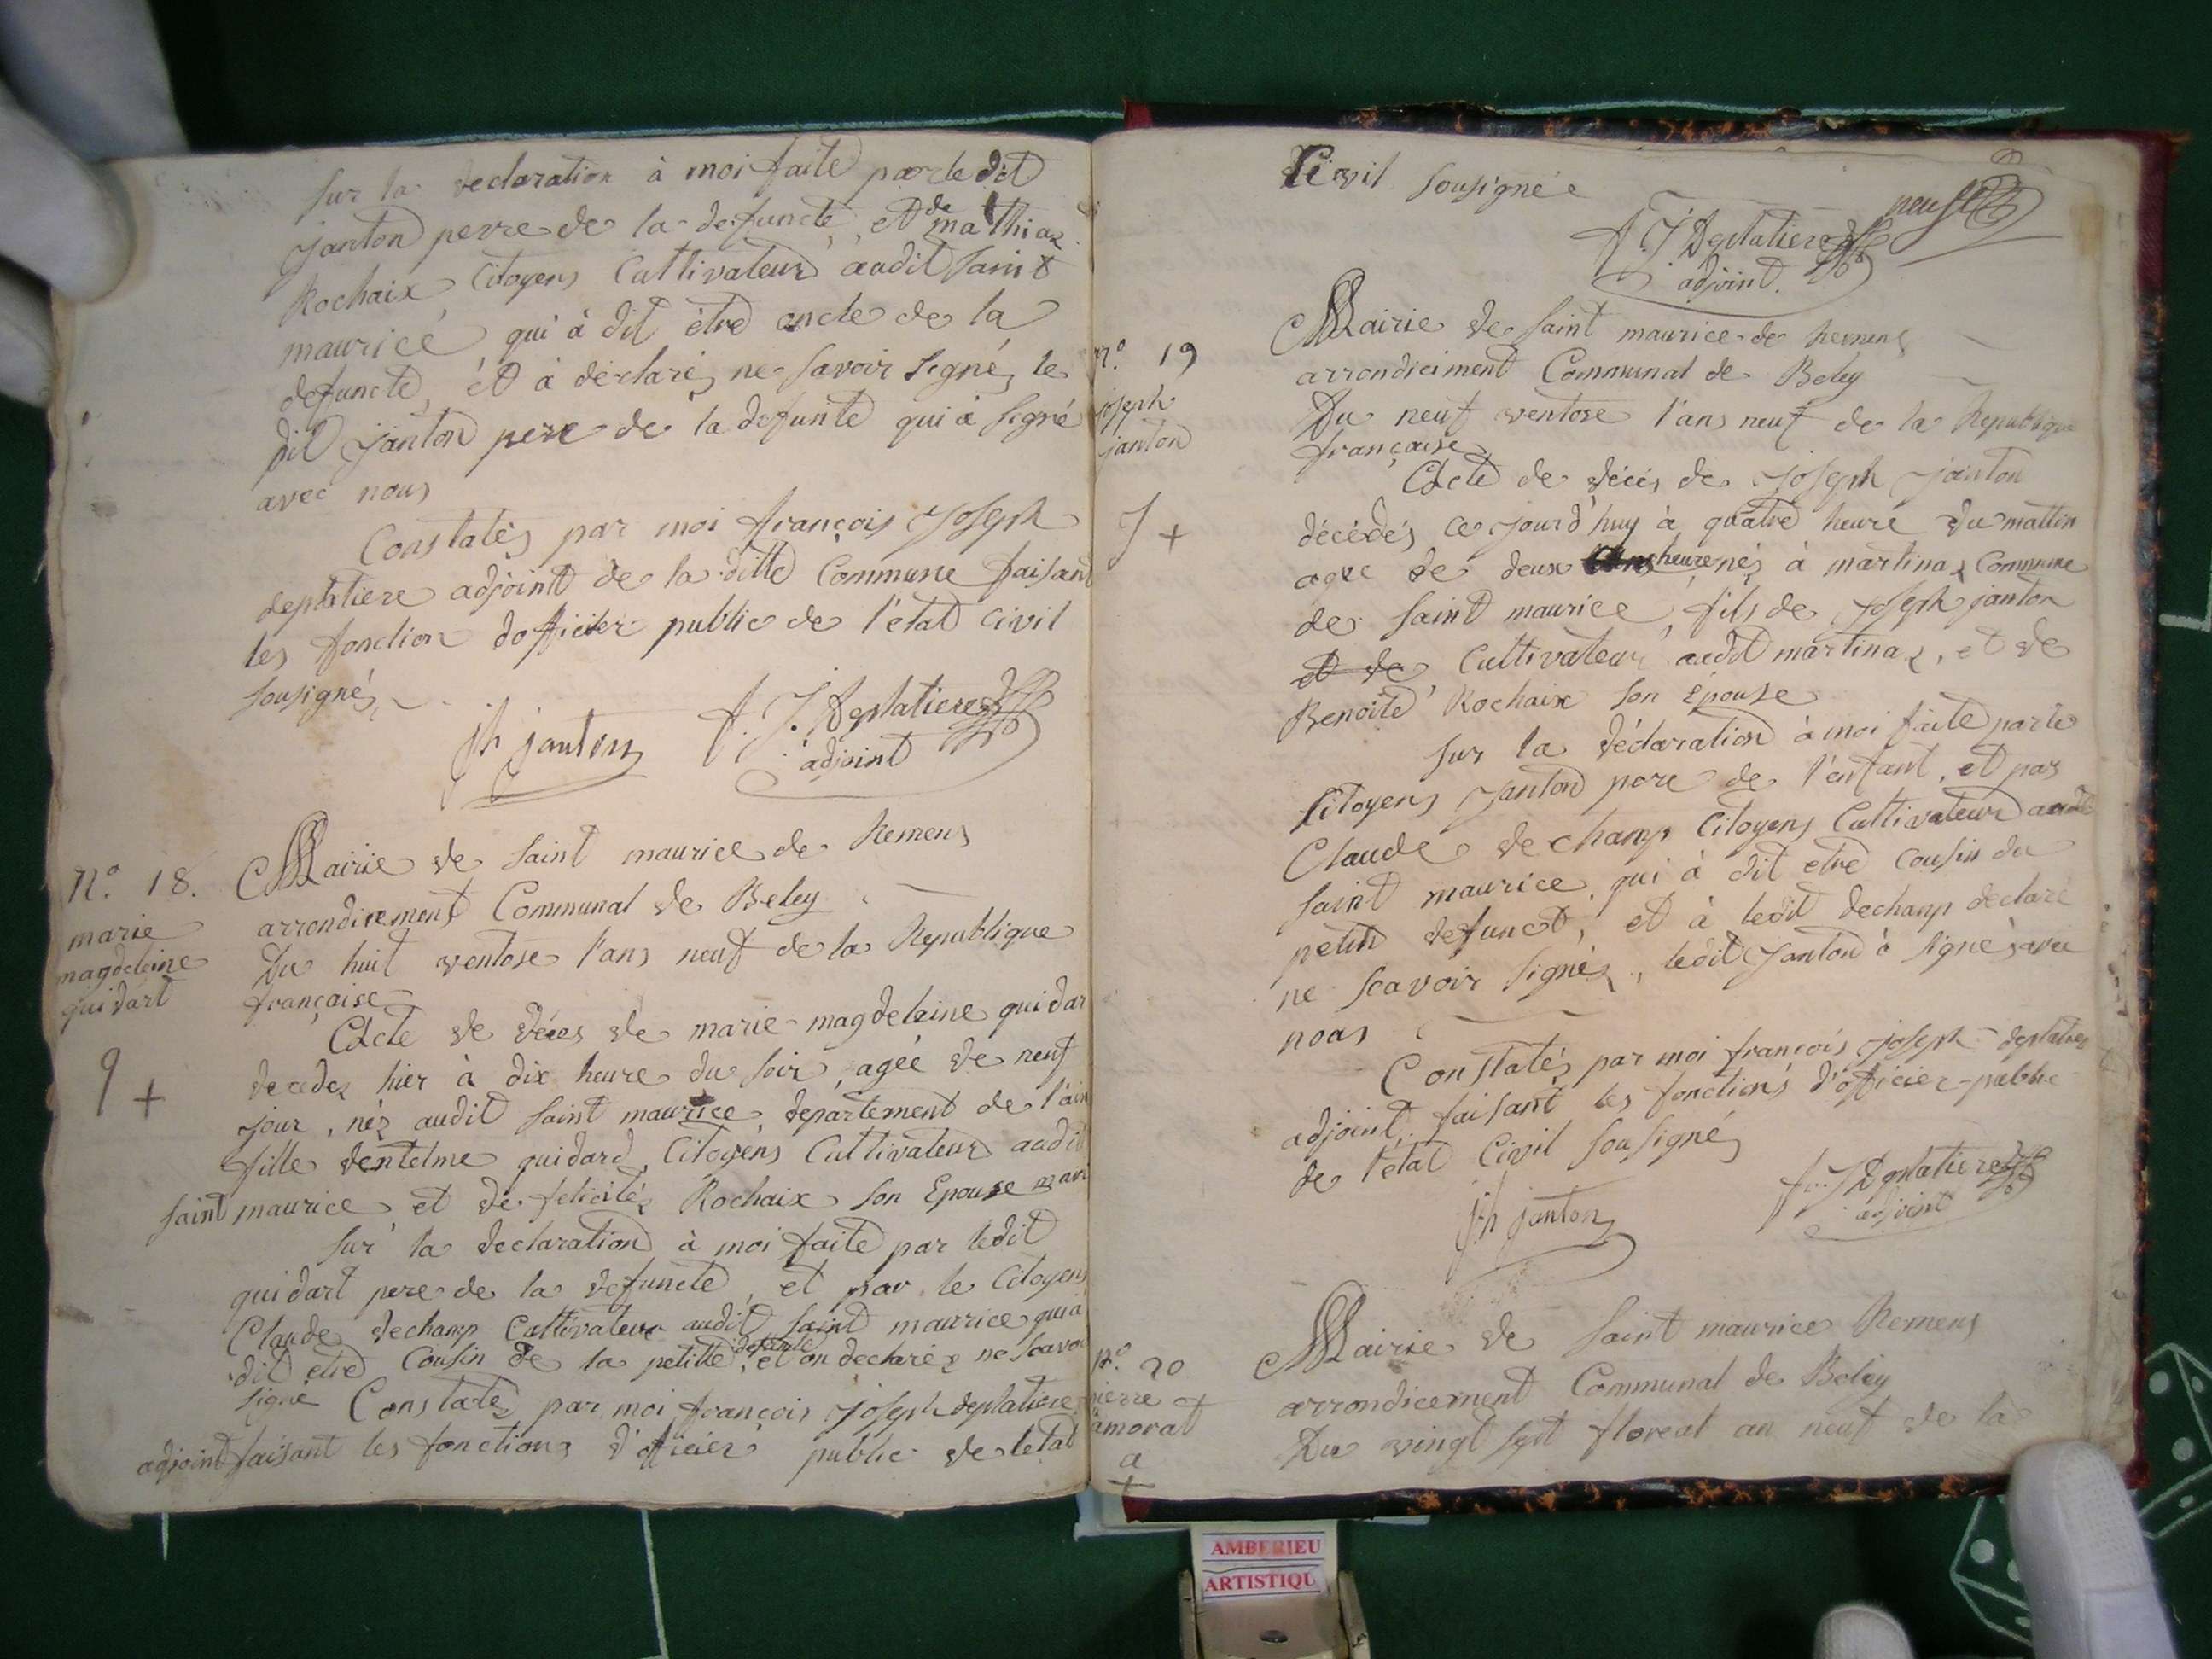 sur la declaration à moi faite par le dit
janton perre de la defuncte, et de mathiaz
Rochaix Citoyens Cultivateur audit saint
maurice qui à dit être oncle de la
defuncte, et à déclaréz ne savoir signéz le
dit janton pere de la defunte qui à signé
avec nous
Constatéz par moi françois Joseph
deplatiere adjoint de la ditte Commune faisant
les fonction dofficier public de l'état Civil
sousignéz
jh janton F. J. Deplatiere
adjoint
N.o 18.
marie
magdeleine
guidart
9 +
Mairie de saint maurice de Remens
arrondicement Communal de Beley
Du huit ventose l'ans neuf de la Republique
française
Acte de déces de marie magdeleine guidar
decedez hier à dix heure du soir, agéé de neuf
jour, néz audit saint maurice departement de l'ain
fille dentelme guidard, Citoyens Cultivateur audit
saint maurice et de felicitéz Rochaix son Epouse mari
sur la declaration à moi faite par ledit
guidart pere de la defuncte, et par le Citoyens
Claude dechamp Cultivateur audit saint maurice qui à
dit etre Cousin de la petitte defunte, et on declaréz ne scavoi
signé Constatéz par moi françois joseph deplatiere
adjoint faisant les fonctions d'officier public de letat
Civil sousignée
F. J. Deplatiere
adjoint.
n.o 19
joseph
janton
J +
Mairie de saint maurice de Remens
arrondiciment Communal de Beley
Du neuf ventose l'ans neuf de la Republique
française
Acte de décés de Joseph janton
décédéz ce jourd'huy à quatre heure du mattin
agee de deux heure néz à martinaz Commune
de saint maurice, fils de Joseph janton
et de Cultivateur audit martinaz, et de
Benoite Rochaix son Epouse
sur la déclaration à moi faite par le
Citoyens Janton pere de l'enfant, et par
Claude de champ Citoyens Cultivateur audit
saint maurice qui à dit etre cousin du
petitt defunct, et à ledit dechamp declaré
ne scavoir signéz, ledit Janton à signéz avec
nous
Constatéz par moi françois joseph deplatiere
adjoint, faisant les fonctions d'officier public
de l'état Civil sousignéz
jh janton F. J. Deplatiere
adjoint
n.o 20
pierre
amorat
a
+
Mairie de saint maurice Remens
arrondicement Communal de Beley
Du vingt sept floreal an neuf de la
AMBERIEU
ARTISTIQU